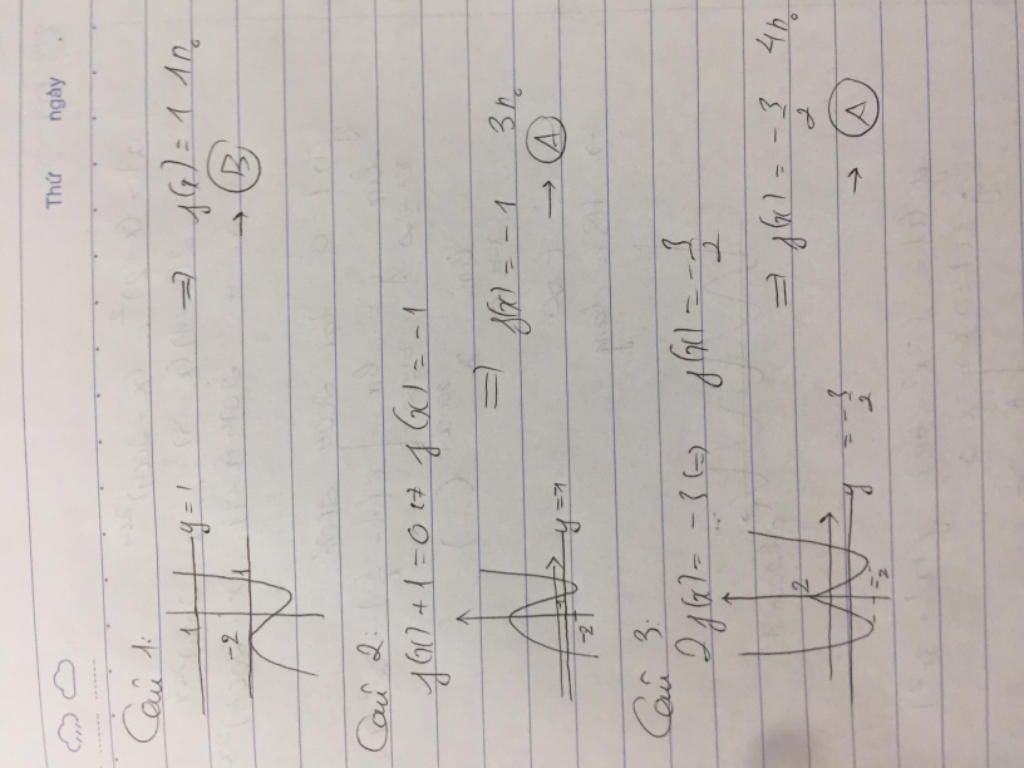 Thứ ngày
Câu 1:
1
y = 1
-2
⇒ f(x) = 1 1n₀
→ B
Câu 2:
f(x) + 1 = 0 ↔ f(x) = -1
-2
⇒ f(x) = -1 3n₀
→ A
Câu 3:
2f(x) = -3 (=) f(x) = -3/2
2
-2
y = -3/2
⇒ f(x) = -3/2 4n₀
→ A